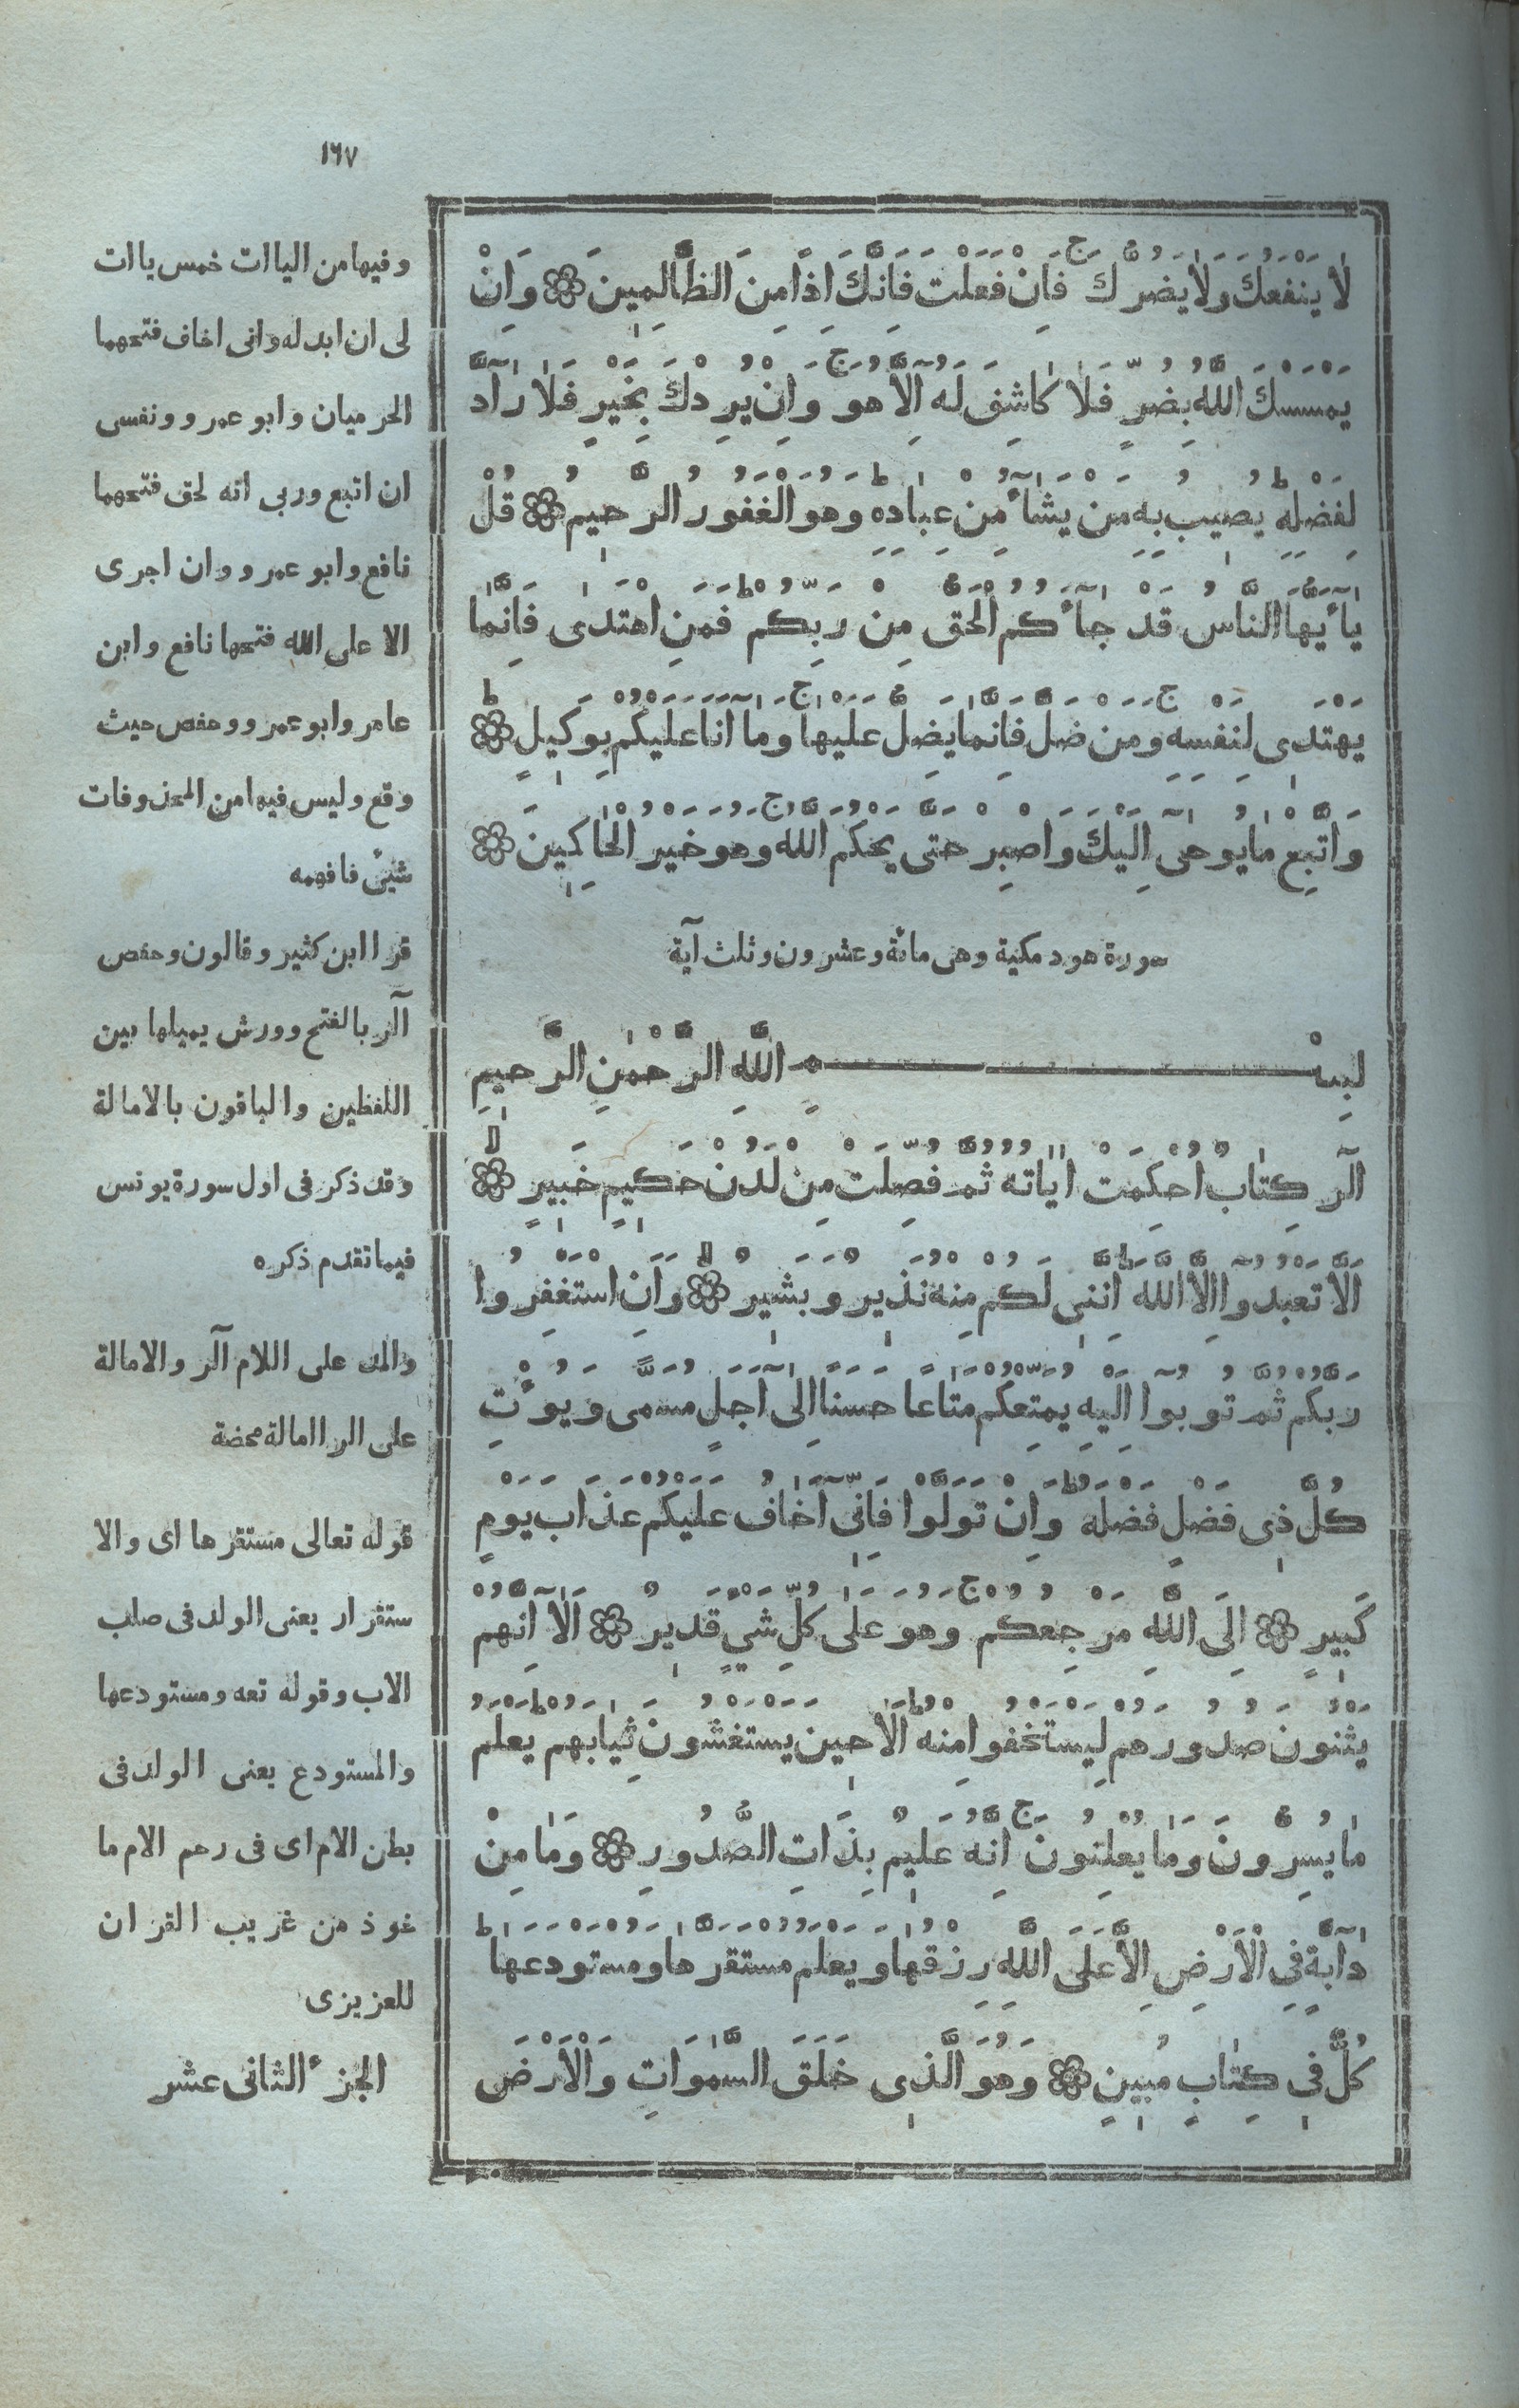 ١٦٧
لٰا يَنْفَعُكَ وَلٰا يَضُرُّكَ ۚ فَاِنْ فَعَلْتَ فَاِنَّكَ اِذًا مِنَ الظّٰالِمِينَ ۞ وَاِنْ
يَمْسَسْكَ اللّٰهُ بِضُرٍّ فَلٰا كٰاشِفَ لَهُ اِلَّا هُوَ ۚ وَاِنْ يُرِدْكَ بِخَيْرٍ فَلٰا رٰآدَّ
لِفَضْلِهِ ۗ يُصِيبُ بِهِ مَنْ يَشٰآءُ مِنْ عِبٰادِهِ ۗ وَهُوَ الْغَفُورُ الرَّحِيمُ ۞ قُلْ
يٰآءَيُّهَا النَّاسُ قَدْ جٰآءَكُمُ الْحَقُّ مِنْ رَبِّكُمْ ۗ فَمَنِ اهْتَدٰى فَاِنَّمٰا
يَهْتَدِى لِنَفْسِهِ ۚ وَمَنْ ضَلَّ فَاِنَّمٰا يَضِلُّ عَلَيْهٰا ۚ وَمٰآ اَنَا عَلَيْكُمْ بِوَكِيلٍ ۗ ۞
وَاتَّبِعْ مٰا يُوحٰىٓ اِلَيْكَ وَاصْبِرْ حَتّٰى يَحْكُمَ اللّٰهُ ۚ وَهُوَ خَيْرُ الْحٰاكِمِينَ ۞
سورة هود مكية وهى مائة وعشرون وثلث آية
بِسْمِ اللّٰهِ الرَّحْمٰنِ الرَّحِيمِ
آلر كِتٰابٌ اُحْكِمَتْ اٰيٰاتُهُ ثُمَّ فُصِّلَتْ مِنْ لَدُنْ حَكِيمٍ خَبِيرٍ ۙ ۞
اَلَّا تَعْبُدُوآ اِلَّا اللّٰهَ ۗ اِنَّنِى لَكُمْ مِنْهُ نَذِيرٌ وَبَشِيرٌ ۙ ۞ وَاَنِ اسْتَغْفِرُوا
رَبَّكُمْ ثُمَّ تُوبُوآ اِلَيْهِ يُمَتِّعْكُمْ مَتٰاعًا حَسَنًا اِلٰىٓ اَجَلٍ مُسَمًّى وَيُؤْتِ
كُلَّ ذِى فَضْلٍ فَضْلَهُ ۗ وَاِنْ تَوَلَّوْا فَاِنِّىٓ اَخٰافُ عَلَيْكُمْ عَذَابَ يَوْمٍ
كَبِيرٍ ۞ اِلَى اللّٰهِ مَرْجِعُكُمْ ۚ وَهُوَ عَلٰى كُلِّ شَىْءٍ قَدِيرٌ ۞ اَلٰآ اِنَّهُمْ
يَثْنُونَ صُدُورَهُمْ لِيَسْتَخْفُوا مِنْهُ ۗ اَلٰا حِينَ يَسْتَغْشُونَ ثِيٰابَهُمْ ۗ يَعْلَمُ
مٰا يُسِرُّونَ وَمٰا يُعْلِنُونَ ۚ اِنَّهُ عَلِيمٌ بِذَاتِ الصُّدُورِ ۞ وَمٰا مِنْ
دٰآبَّةٍ فِى الْاَرْضِ اِلَّا عَلَى اللّٰهِ رِزْقُهٰا وَيَعْلَمُ مُسْتَقَرَّهٰا وَمُسْتَوْدَعَهٰا ۗ
كُلٌّ فِى كِتٰابٍ مُبِينٍ ۞ وَهُوَ الَّذِى خَلَقَ السَّمٰوَاتِ وَالْاَرْضَ
وفيها من الياات خمس ياات
لى ان ابدله وانى اخاف فتحهما
الحرميان وابو عمرو ونفسى
ان اتبع وربى انه لحق فتحهما
نافع وابو عمرو وان اجرى
الا على الله فتحها نافع وابن
عامر وابو عمرو وحفص حيث
وقع وليس فيها من المحذوفات
شيئ فافهمه
قرا ابن كثير وقالون وحفص
آلر بالفتح وورش يميلها بين
اللفظين والباقون بالامالة
وقد ذكر فى اول سورة يونس
فيما تقدم ذكره
والمد على اللام آلر والامالة
على الرا امالة محضة
قوله تعالى مستقرها اى والا
ستقرار يعنى الولد فى صلب
الاب وقوله تعه ومستودعها
والمستودع يعنى الولد فى
بطن الام اى فى رحم الام ما
خوذ من غريب القران
للعزيزى
الجزء الثانى عشر